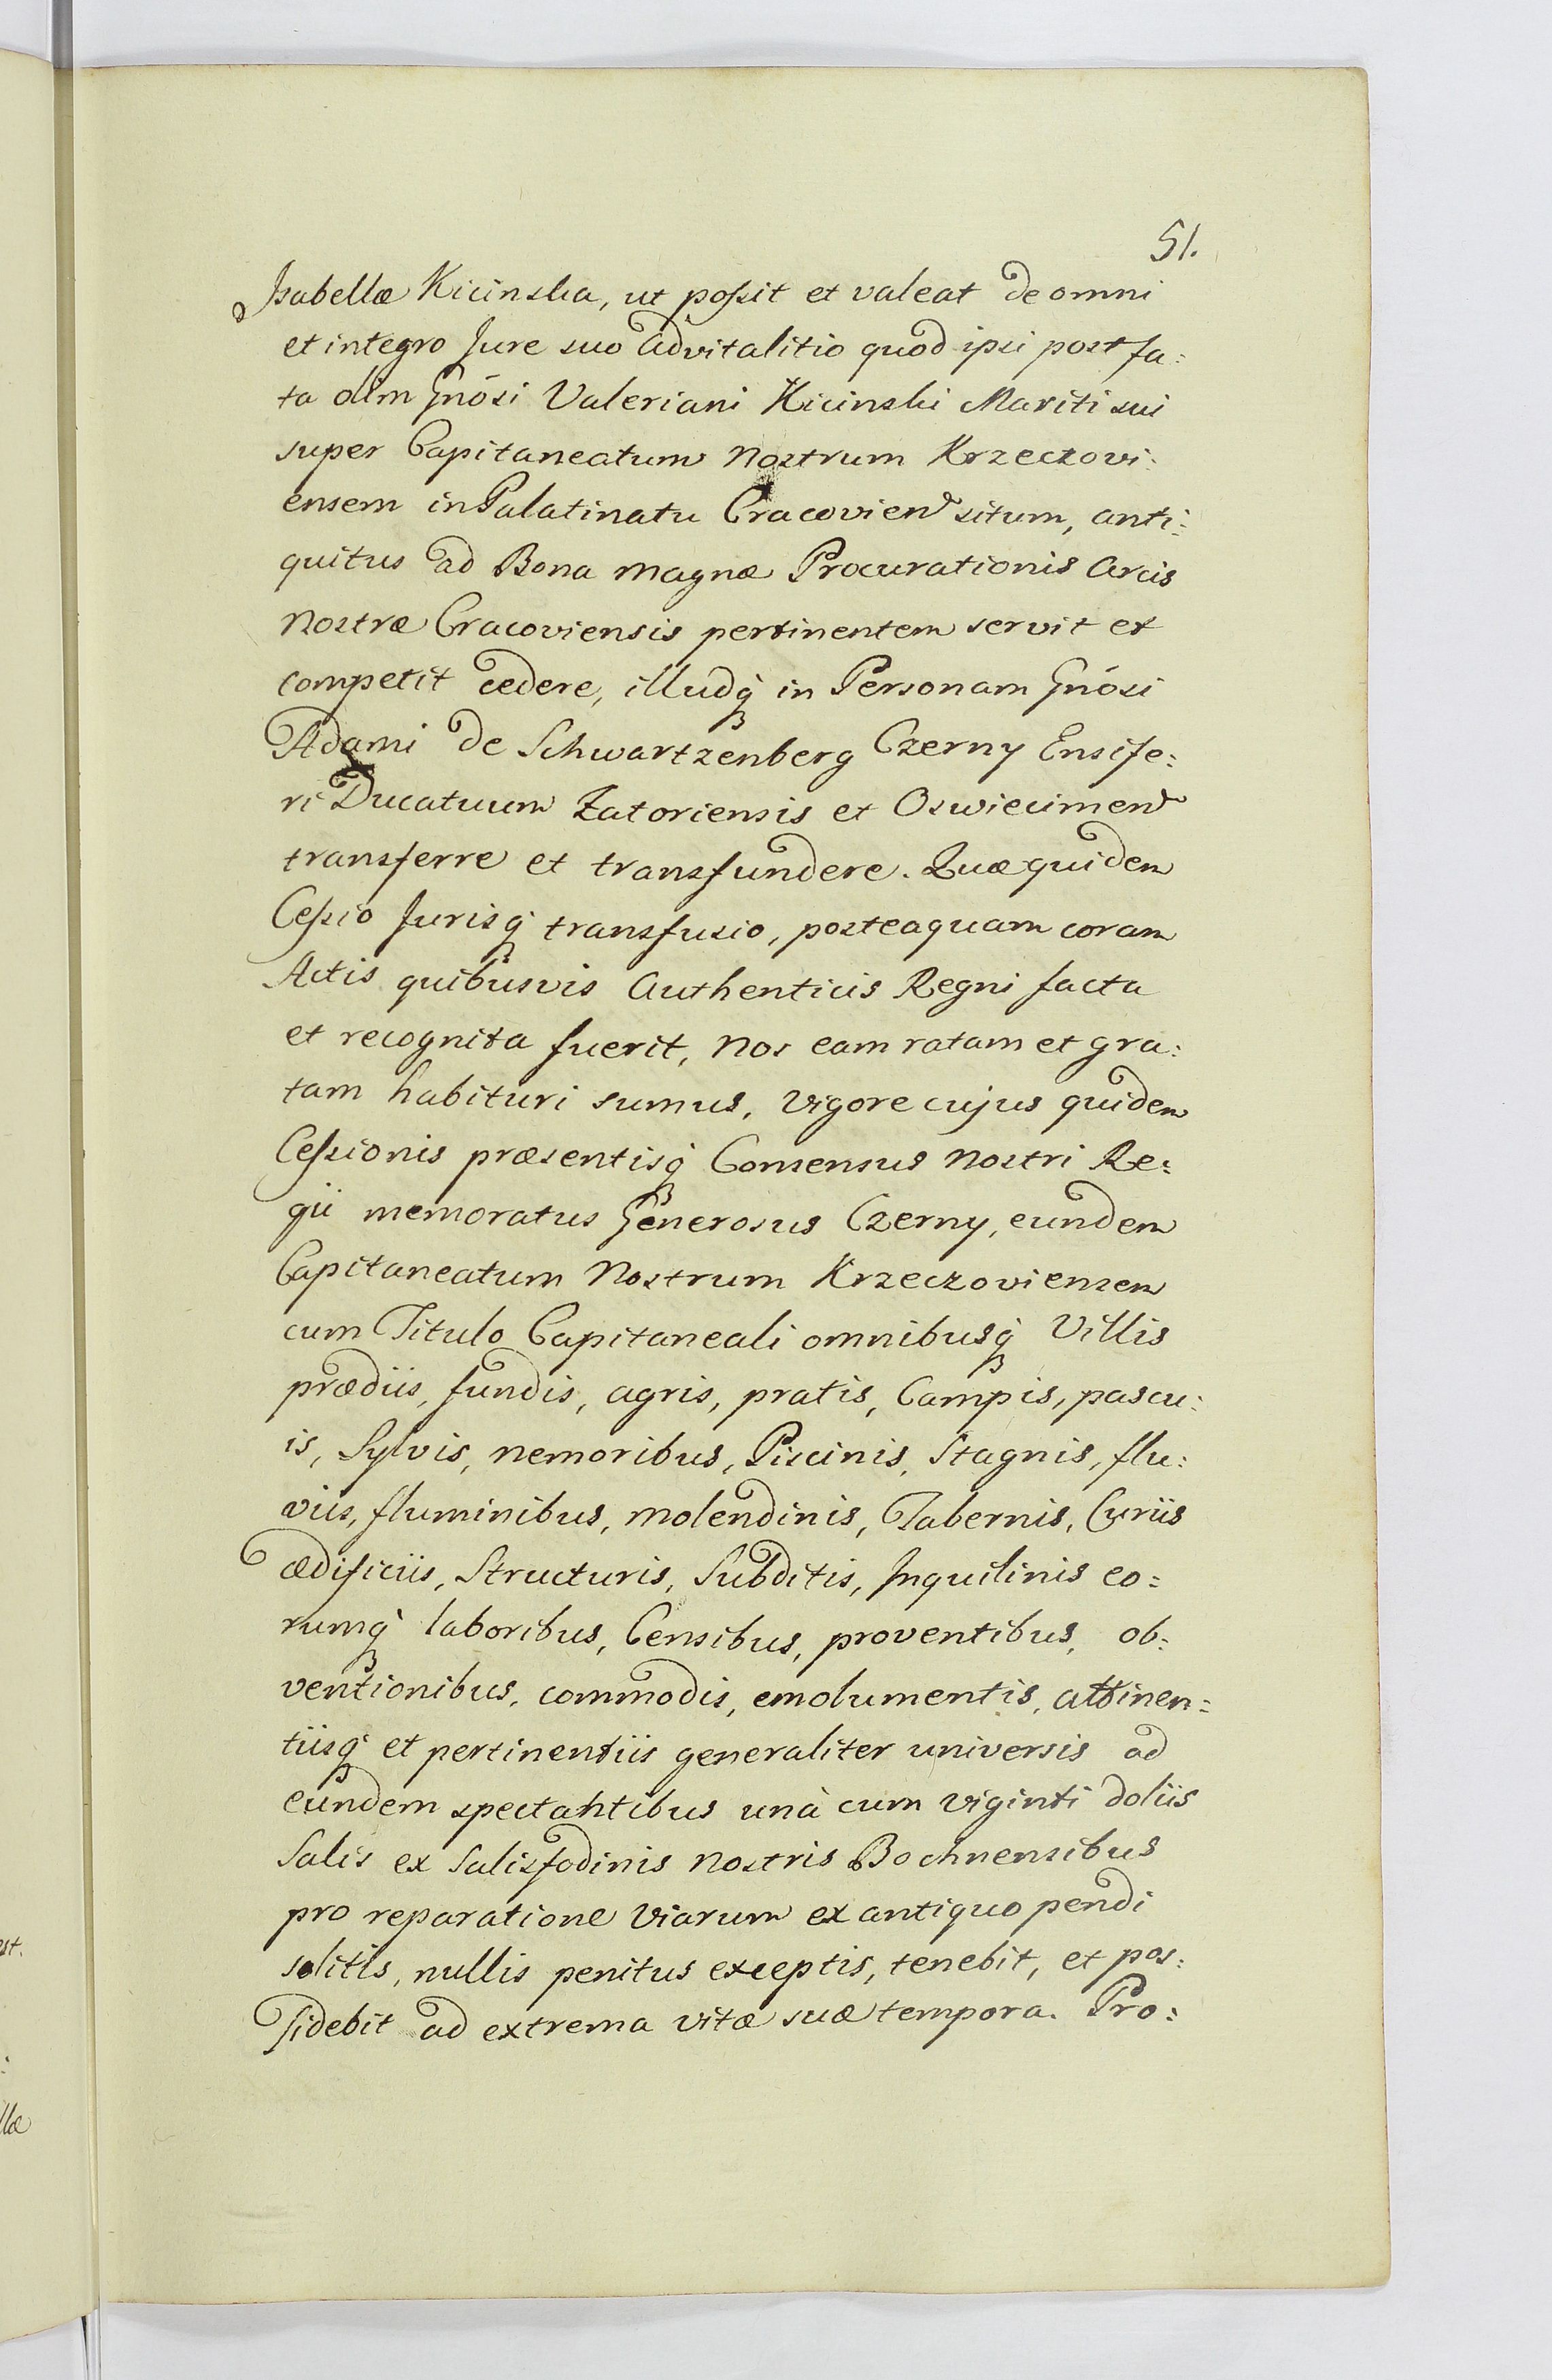 51.
Isabellæ Kicinska, ut possit et valeat de omni
et integro Jure suo advitalitio quod ipsi post fa:
ta olim Gnósi Valeriani Kicinski Mariti sui
super Capitaneatum nostrum Krzeczovi:
ensem in Palatinatu Cracovien situm, anti:
quitus ad Bona magnæ Procurationis Arcis
nostræ Cracoviensis pertinentem servit et
competit cedere, illudq in Personam Gnósi
Adami de Schwartzenberg Czerny Ensife:
ri Ducatuum Zatoriensis et Oswiecimen
transferre et transfundere. Quæ quidem
Cessio Jurisq transfusio, posteaquam coram
Actis quibusvis Authenticis Regni facta
et recognita fuerit, nos eam ratam et gra:
tam habituri sumus, vigore cujus quidem
Cessionis præsentisq Consensus nostri Re:
gii memoratus Generosus Czerny, eundem
Capitaneatum Nostrum Krzeczoviensem
cum Titulo Capitaneali omnibusq Villis
prædiis, fundis, agris, pratis, Campis, pascu:
is, Sylvis, nemoribus, Piscinis, Stagnis, flu:
viis, fluminibus, molendinis, Tabernis, Curiis
ædificiis, Structuris, Subditis, Inquilinis eo:
rumq laboribus, Censibus, proventibus, ob:
ventionibus, commodis, emolumentis, attinen:
tiisq et pertinentiis generaliter universis ad
eundem spectantibus unà cum viginti doliis
Salis ex Salisfodinis nostris Bochnensibus
pro reparatione viarum ex antiquo pendi
solitis, nullis penitus exceptis, tenebit, et pos:
sidebit ad extrema vitæ suæ tempora. Pro: